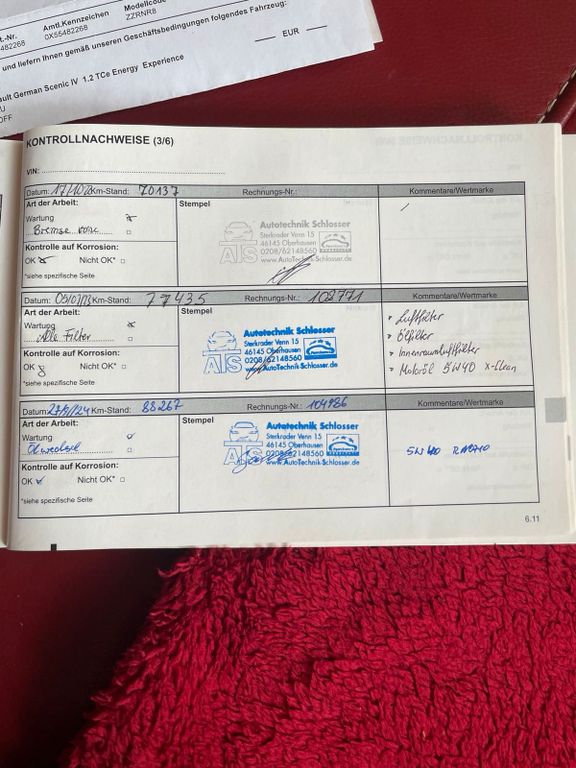 t.-Nr. Amtl.Kennzeichen Modellcode
482268 0X55482268 ZZRNR8
und liefern Ihnen gemäß unseren Geschäftsbedingungen folgendes Fahrzeug:
EUR
ault German Scenic IV 1.2 TCe Energy Experience
KONTROLLNACHWEISE (3/6)
VIN:
Datum: Km-Stand: 70137 Rechnungs-Nr.: Kommentare/Wertmarke
Art der Arbeit: Stempel
Wartung
Bremse
Autotechnik Schlosser
Sterkrader Venn 15
46145 Oberhausen
0208/62148560
www.AutoTechnik-Schlosser.de
ATS
Kontrolle auf Korrosion:
OK Nicht OK*
*siehe spezifische Seite
Datum: Km-Stand: 77435 Rechnungs-Nr.: 102771 Kommentare/Wertmarke
Art der Arbeit: Stempel
Wartung
Alle Filter
Autotechnik Schlosser
Sterkrader Venn 15
46145 Oberhausen
0208/62148560
www.AutoTechnik-Schlosser.de
ATS
Luftfilter
Ölfilter
Innenraumluftfilter
Motoröl 5W40 X-Clean
Kontrolle auf Korrosion:
OK Nicht OK*
*siehe spezifische Seite
Datum: Km-Stand: 88267 Rechnungs-Nr.: 104986 Kommentare/Wertmarke
Art der Arbeit: Stempel
Wartung
Ölwechsel
Autotechnik Schlosser
Sterkrader Venn 15
46145 Oberhausen
0208/62148560
www.AutoTechnik-Schlosser.de
ATS
5W40
Kontrolle auf Korrosion:
OK Nicht OK*
*siehe spezifische Seite
6.11